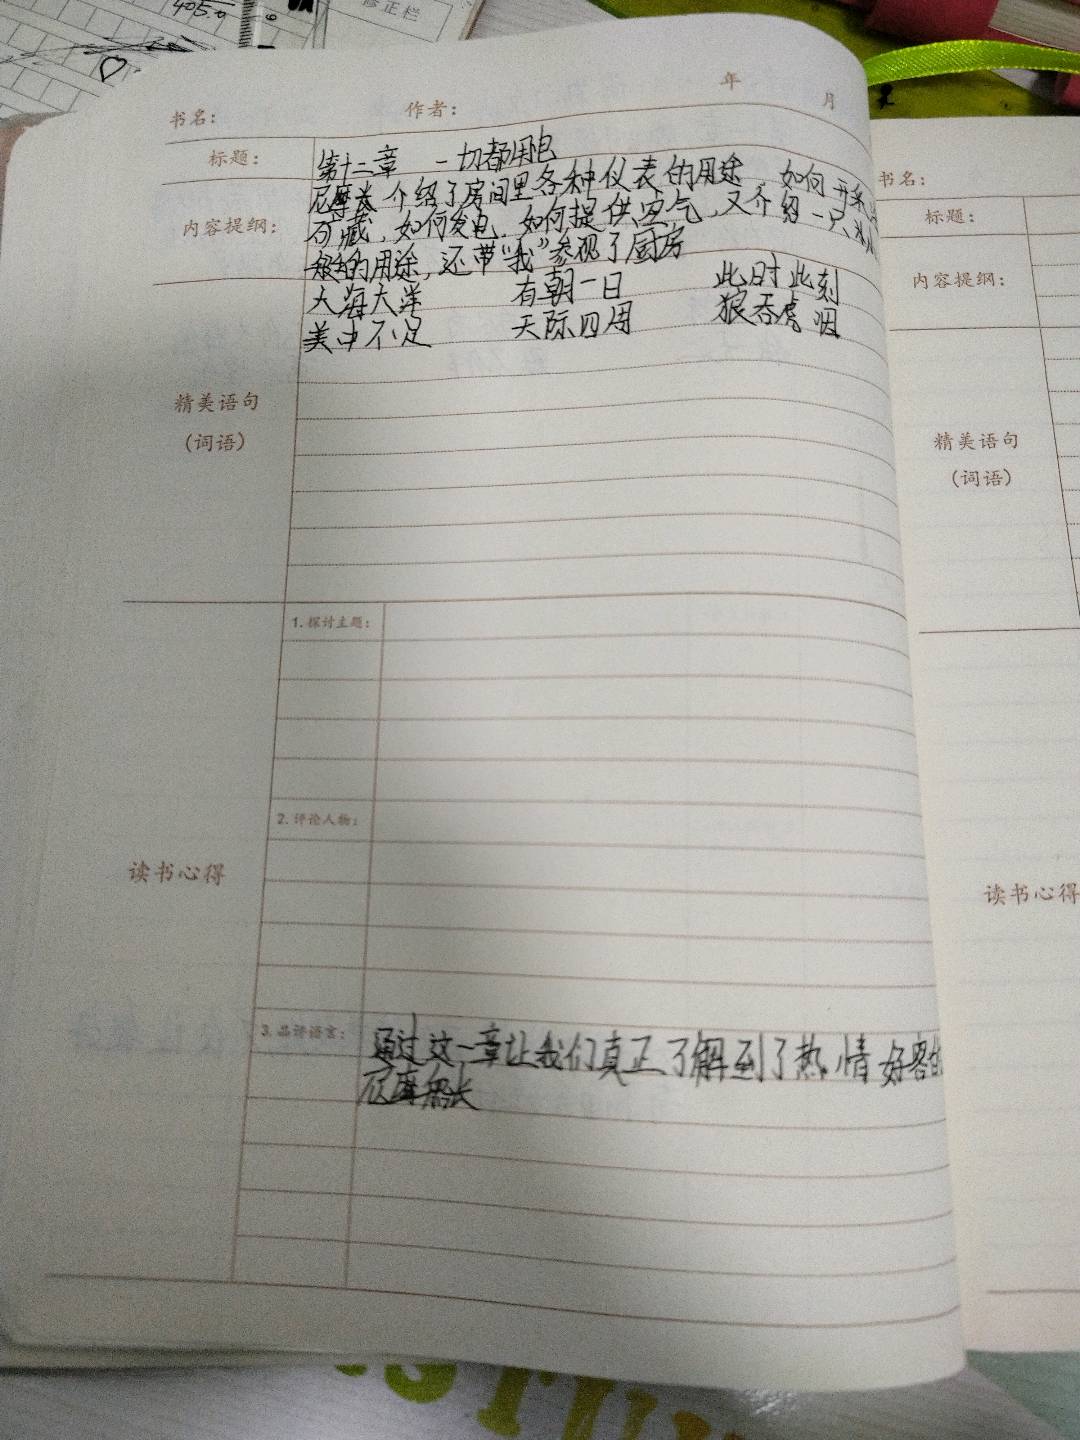 405.0
修正栏
书名： 作者： 年 月
标题： 第十二章 一切都用电
内容提纲： 尼摩 介绍了房间里各种仪表的用途，如何开采
矿藏，如何发电，如何提供空气，又介绍一只
的用途，还带“我”参观了厨房
大海大洋 有朝一日 此时此刻
美中不足 天际四周 狼吞虎咽
精美语句
（词语）
1.探讨主题：
2.评论人物：
读书心得
3.品评语言： 通过这一章让我们真正了解到了热情好客的
尼摩船长
书名：
标题：
内容提纲：
精美语句
（词语）
读书心得